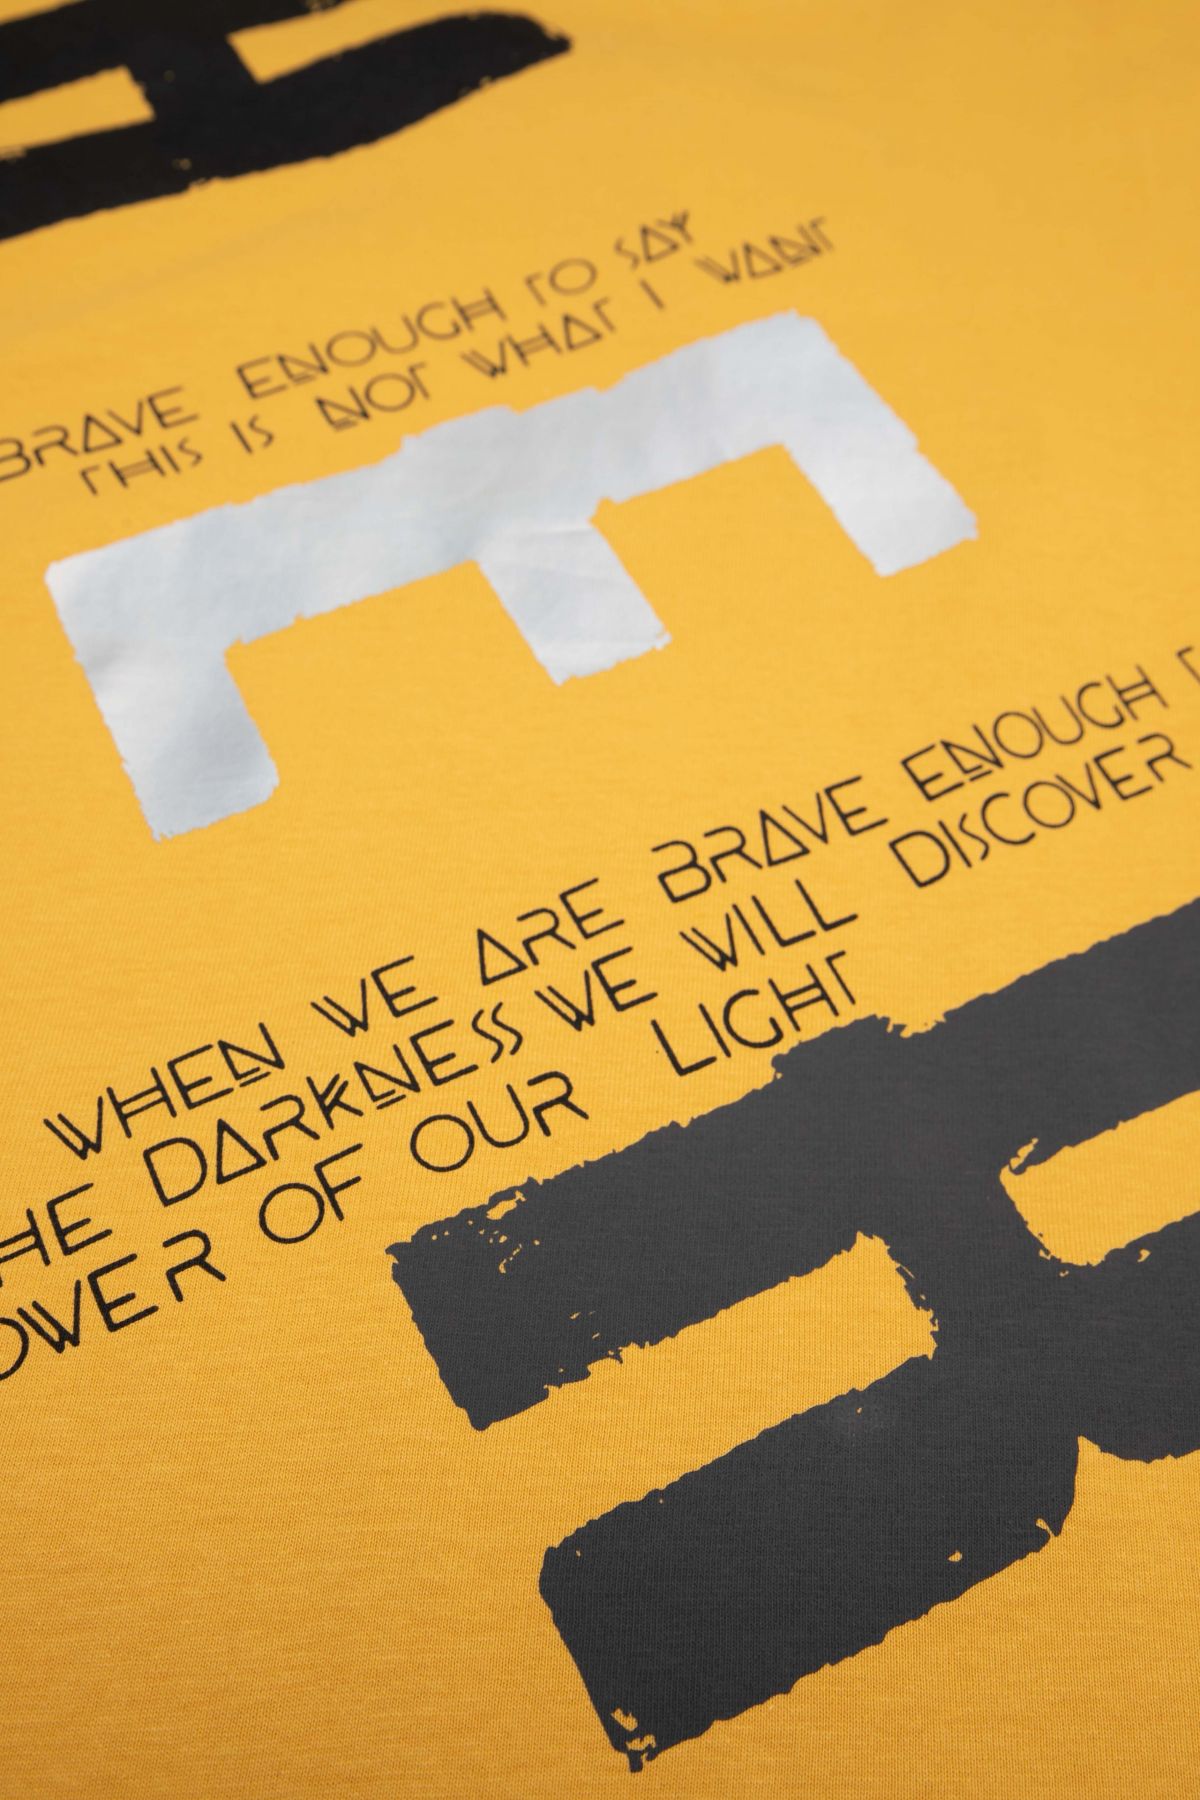 BRAVE ENOUGH TO SAY
THIS IS NOT WHAT I WANT
E
WHEN WE ARE BRAVE ENOUGH
DARKNESS WE WILL DISCOVER
OF OUR LIGHT